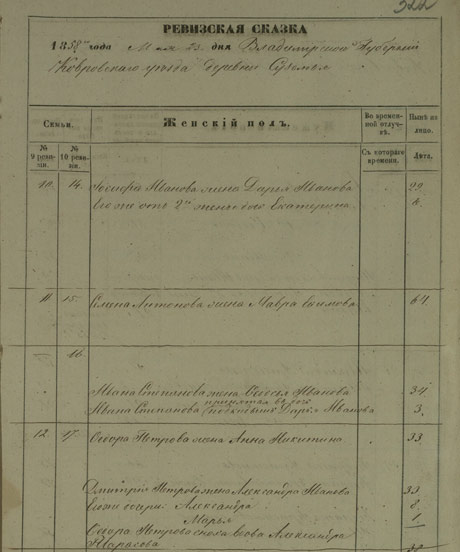 322
РЕВИЗСКАЯ СКАЗКА
1858 года Мая 23 дня Владимирской Губернии
Ковровского уезда деревни
Семьи.
Женский полъ.
Во времен-
ной отлуч-
кѣ.
Нынѣ на
лицо.
№ 9 реви-
зіи.
№ 10 реви-
зіи.
Съ котораго
времени.
Лѣта.
10. 14. Иванова жена Дарья Иванова 29
Его же отъ 2й жены дочь Екатерина 8
11 15. Антонова жена Мавра 64
16
Ивана Степанова жена Федосья Иванова 34
Ивана Степанова Дарья Иванова 3
12 17 Федора Петрова жена Анна Никитина 33
Дмитрия Петрова жена Александра Иванова 33
дочери Александра 8
Марья 1
Федора Петрова Александра
Тарасова